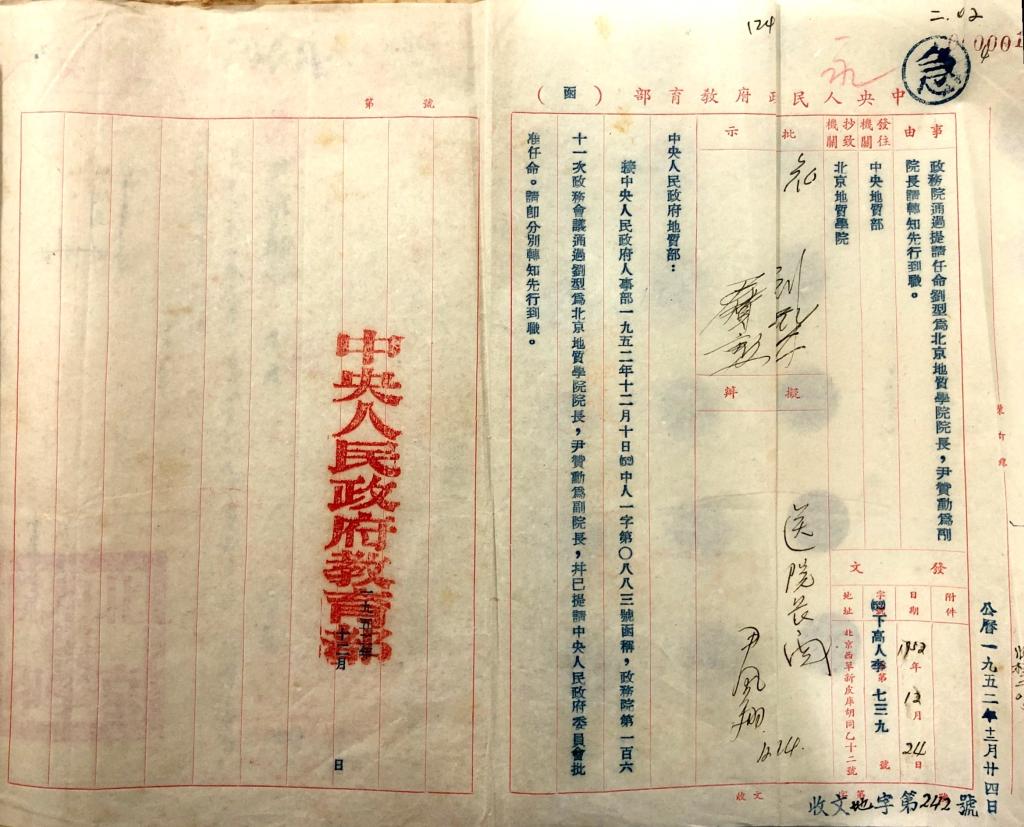 124
二.02
急
中央人民政府教育部（函）
事由
政務院通過提請任命劉型爲北京地質學院院長，尹贊勳爲副
院長請轉知先行到職。
發往機關
中央地質部
抄致機關
北京地質學院
發文
附件
日期
1952年12月24日
字號
(52)下高人季第七三九號
地址
北京西單新皮庫胡同乙十二號
批示
知
劉型
擬辦
送院長閱
尹鳳翔
12.24.
中央人民政府地質部：
接中央人民政府人事部一九五二年十二月十日(52)中人一字第〇八八三號函稱，政務院第一百六
十一次政務會議通過劉型爲北京地質學院院長，尹贊勳爲副院長，幷已提請中央人民政府委員會批
准任命。請卽分別轉知先行到職。
公曆一九五二年十二月廿四日
收文地字第242號
收文 字第
第 號
中央人民政府教育部
一九五二年
十二月
日